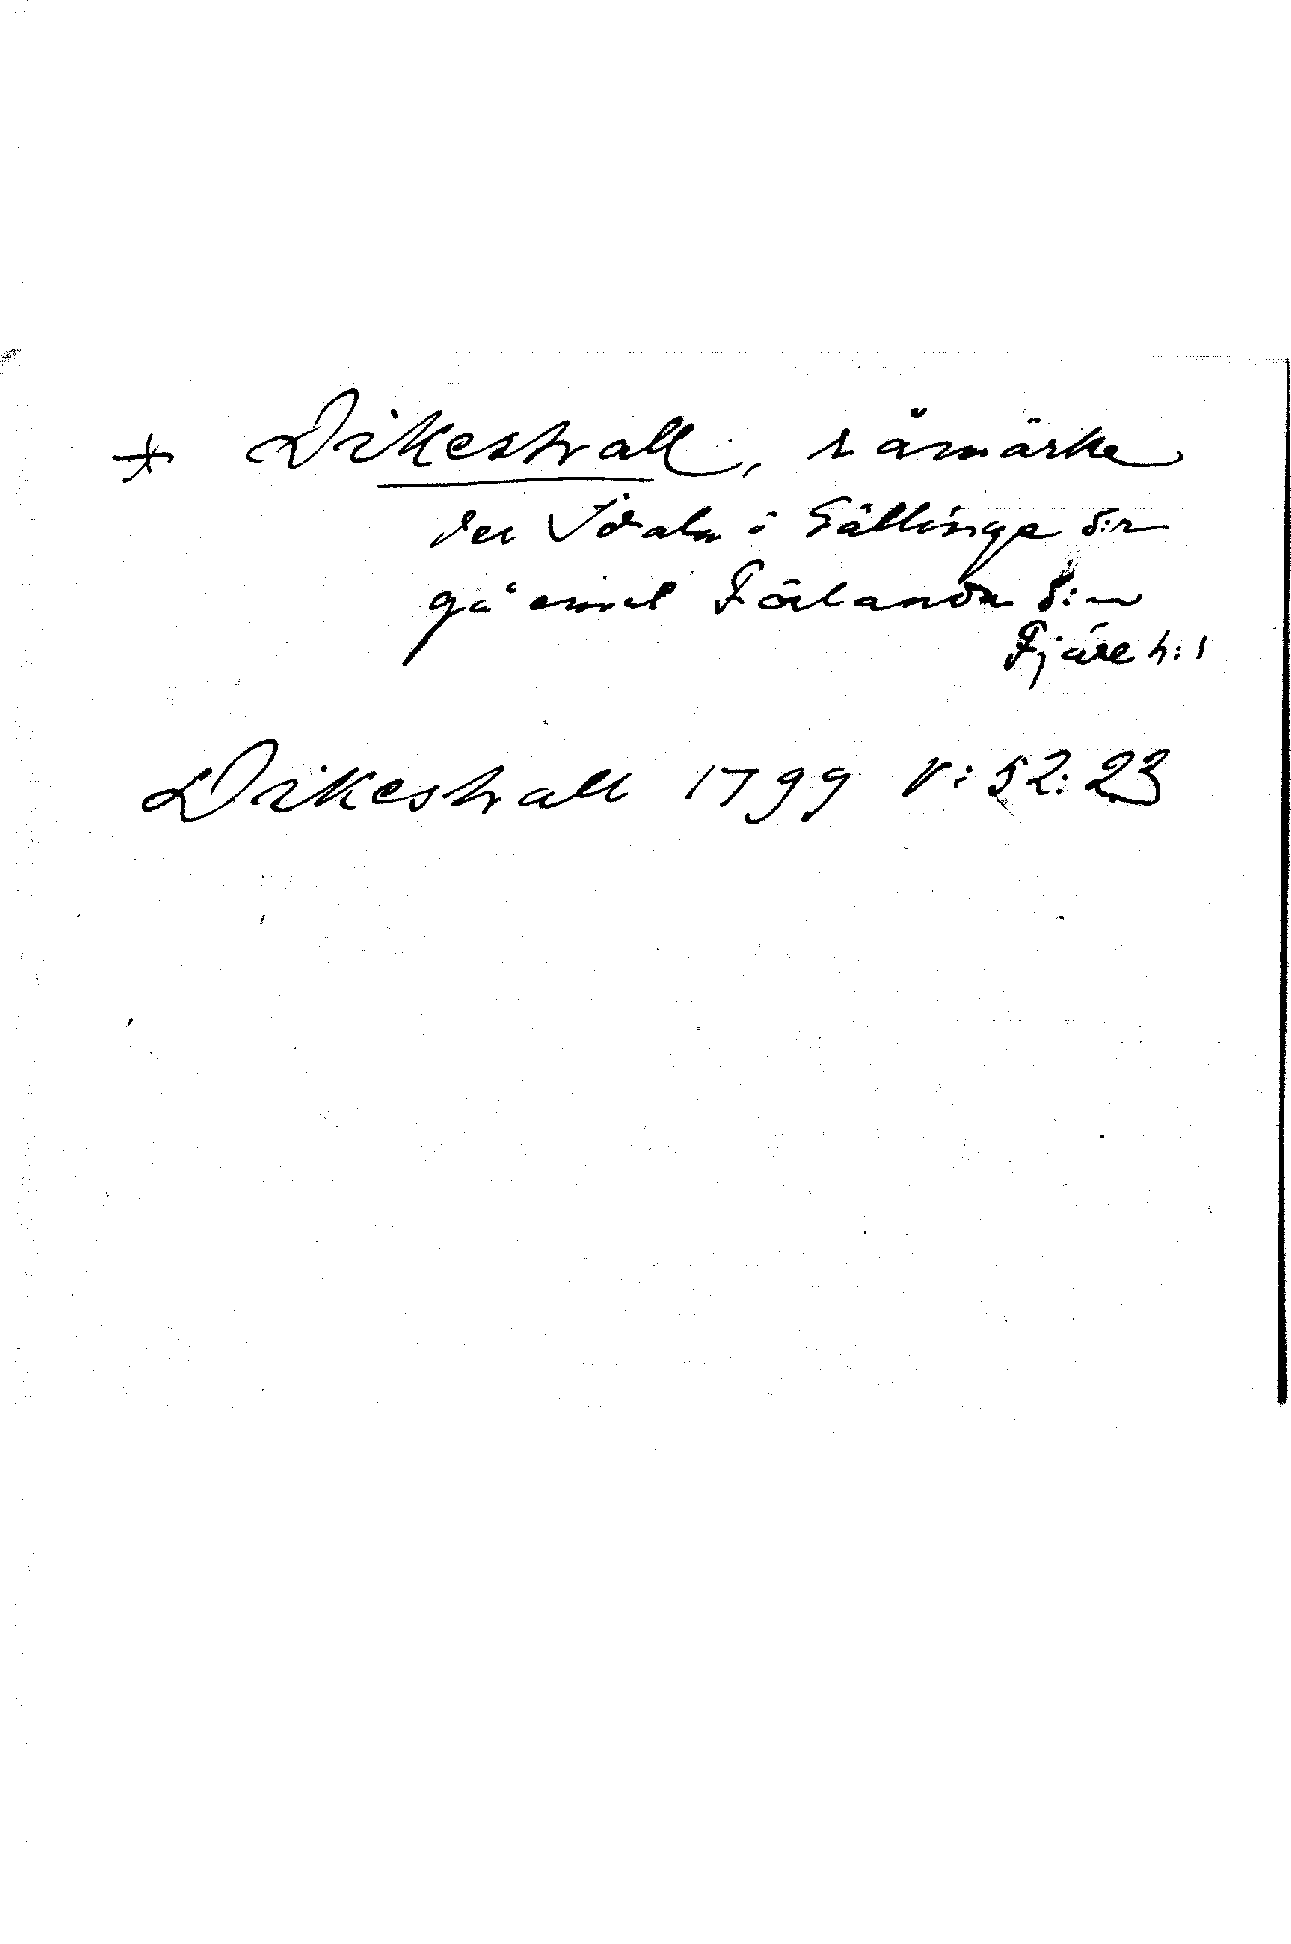 * Dikestrall, råmärke
der Idala i Gällinge s:n
gå emot Förlanda s:n
Fjäre h:d
Dikestrall 1799 V:52:23